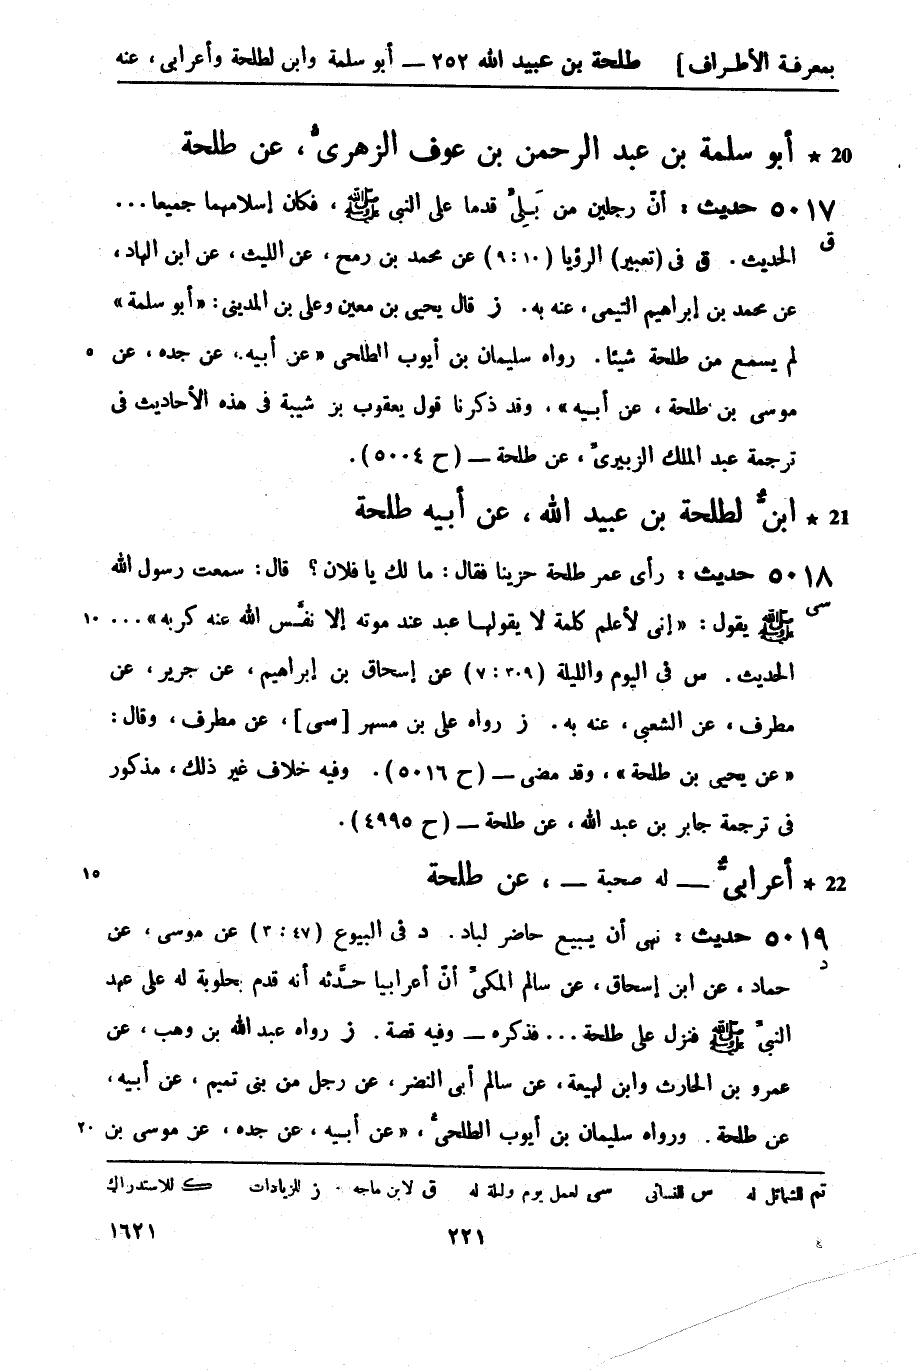 بمعرفة الأطراف] طلحة بن عبيد الله ٢٥٢ — أبو سلمة وابن لطلحة وأعرابى ، عنه
20 ★ أبو سلمة بن عبد الرحمن بن عوف الزهرىّ ، عن طلحة
٥٠١٧ حديث : أنّ رجلين من بَلِىّ قدما على النبى ﷺ ، فكان إسلامهما جميعا ...
ق
الحديث . ق فى (تعبير) الرؤيا (١٠ : ٩) عن محمد بن رمح ، عن الليث ، عن ابن الهاد ،
عن محمد بن إبراهيم التيمى ، عنه به . ز قال يحيى بن معين وعلى بن المدينى : «أبو سلمة»
لم يسمع من طلحة شيئا . رواه سليمان بن أيوب الطلحى «عن أبيه ، عن جده ، عن ٥
موسى بن طلحة ، عن أبيه» . وقد ذكرنا قول يعقوب بن شيبة فى هذه الأحاديث فى
ترجمة عبد الملك الزبيرىّ ، عن طلحة — (ح ٥٠٠٤) .
21 ★ ابنٌ لطلحة بن عبيد الله ، عن أبيه طلحة
٥٠١٨ حديث : رأى عمر طلحة حزينا فقال : ما لك يا فلان ؟ قال : سمعت رسول الله
سى
ﷺ يقول : «إنى لأعلم كلمة لا يقولها عبد عند موته إلا نفَّس الله عنه كربه» ... ١٠
الحديث . س فى اليوم والليلة (٣٠٩ : ٧) عن إسحاق بن إبراهيم ، عن جرير ، عن
مطرف ، عن الشعبى ، عنه به . ز رواه على بن مسهر [سى] ، عن مطرف ، وقال :
«عن يحيى بن طلحة» ، وقد مضى — (ح ٥٠١٦) . وفيه خلاف غير ذلك ، مذكور
فى ترجمة جابر بن عبد الله ، عن طلحة — (ح ٤٩٩٥) .
22 ★ أعرابىٌّ — له صحبة — ، عن طلحة ١٥
٥٠١٩ حديث : نهى أن يبيع حاضر لباد . د فى البيوع (٤٧ : ٣) عن موسى ، عن
د
حماد ، عن ابن إسحاق ، عن سالم المكىّ أنّ أعرابيا حدَّثه أنه قدم بحلوبة له على عهد
النبىّ ﷺ فنزل على طلحة ... فذكره — وفيه قصة . ز رواه عبد الله بن وهب ، عن
عمرو بن الحارث وابن لهيعة ، عن سالم أبى النضر ، عن رجل من بنى تميم ، عن أبيه ،
عن طلحة . ورواه سليمان بن أيوب الطلحىّ ، «عن أبيه ، عن جده ، عن موسى بن ٢٠
تم للشمائل له س للنسائى سى لعمل يوم وليلة له ق لابن ماجه ز للزيادات ك للاستدراك
٢٢١ ١٦٢١